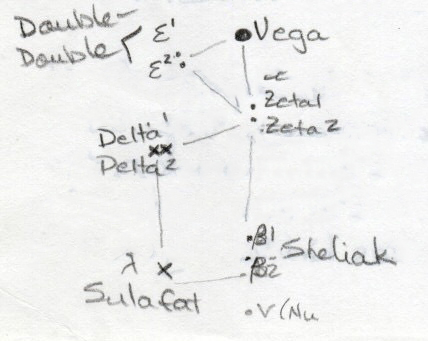 Double-
Double
ε1
ε2
Vega
Zeta1
Zeta2
Delta1
Delta2
β1
β2
Sheliak
λ
Sulafat
ν(Nu